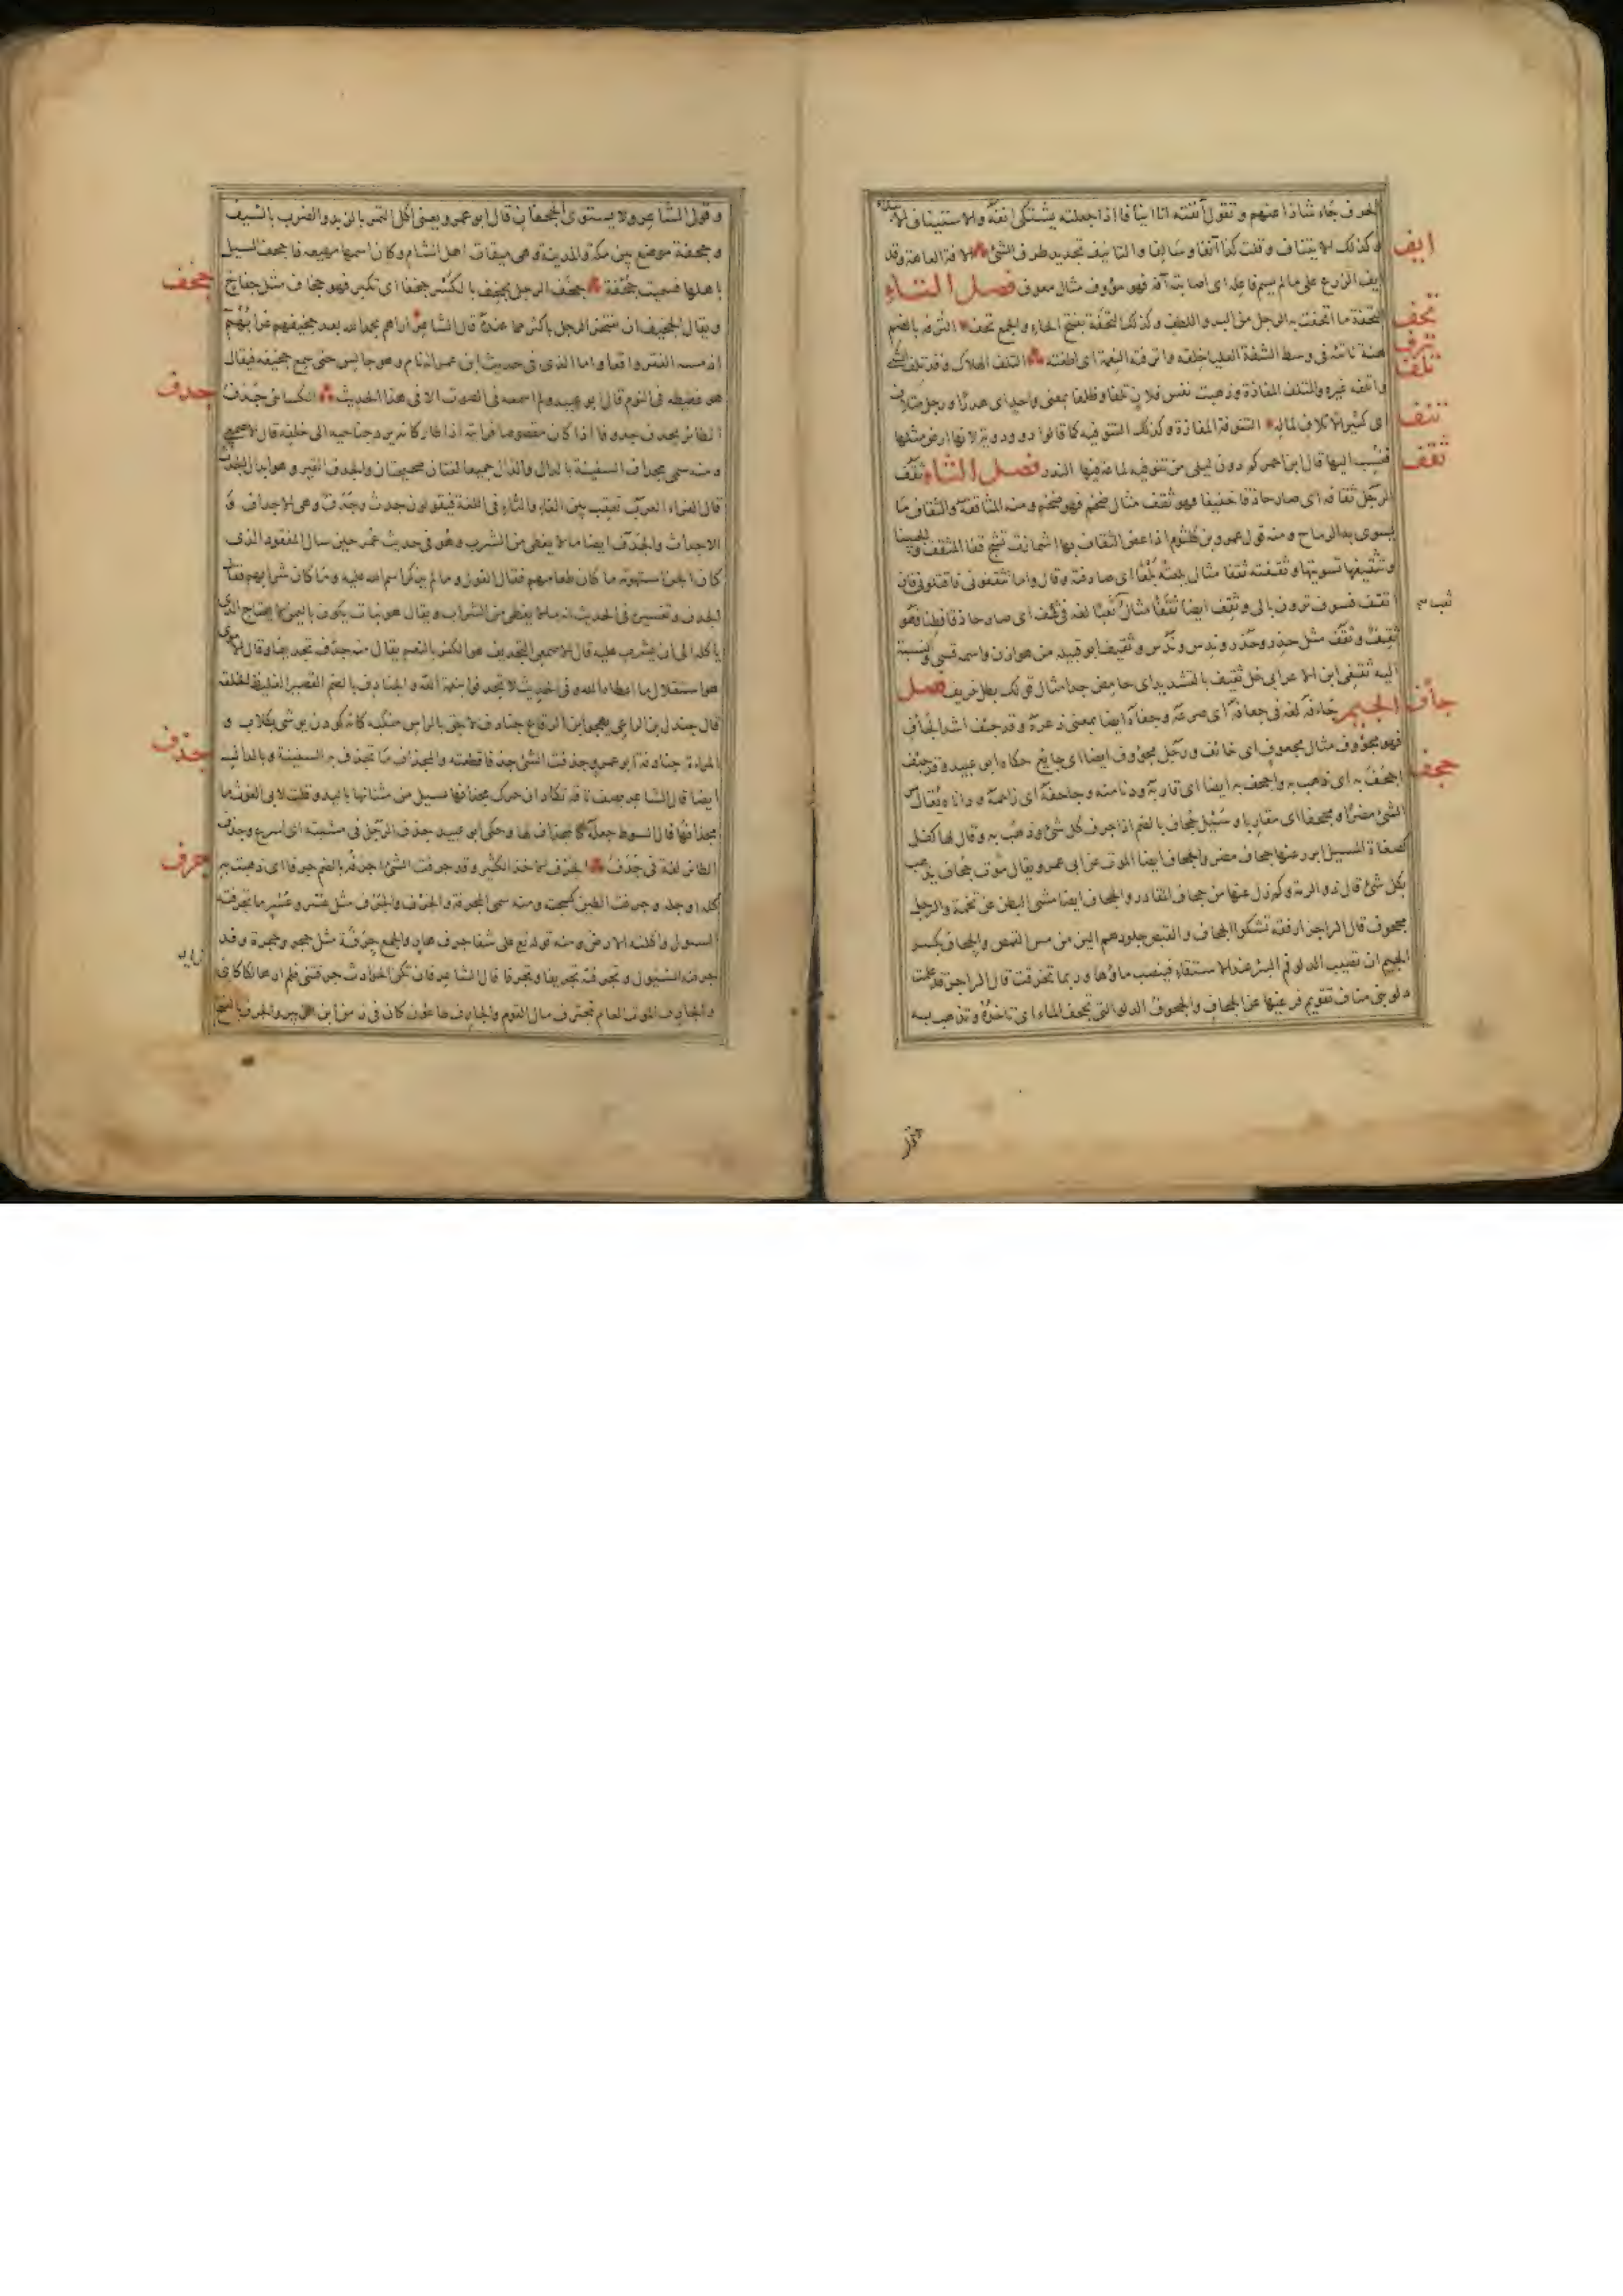 الحرف جاء شاذا عنهم وتقول آنفته انا اينافا اذا جعلته يشتكى انفه والاستيناف الابتداء
ايف
وكذلك الايتناف وقلت كذا آنفا وسالفا والتانيف تحديد طرف الشئ الآفة العاهة وقد
ايف الزرع على مالم يسم فاعله اى اصابته آفة فهو مؤوف مثال معوف فصل التاء
تحف
التحفة ما اتحفت به الرجل من البر واللطف وكذلك التحفة بفتح الحاء والجمع تحف الترفه بالضم
ترف
هنة ناتئة فى وسط الشفة العليا خلقه واترفته النعمة اى اطغته التلف الهلاك وقد تلف الشئ
تلف
واتلفه غيره والمتلف المفازة وذهبت نفس فلان تلفا وظلفا بمعنى واحد اى هدرا ورجل متلاف
تنف
اى كثير الاتلاف لماله التنوفة المفازة وكذلك التنوفية كما قالوا دو ودوية لانها ارض مثلها
ثقف
فنسب اليها قال ابن احمر كم دون ليلى من تنوفية لماعة فيها النذر فصل الثاء ثقف
الرجل ثقافة اى صار حاذقا خفيفا فهو ثقف مثال ضخم فهو ضخم ومنه المثاقفة والثقاف ما
يسوى به الرماح ومنه قول عمرو بن كلثوم اذا عض الثقاف بها اشمأزت تشج قفا المثقف والجبينا
وتثقيفها تسويتها وثقفته ثقفا مثال بلعته بلعا اى صادفته وقال واما تثقفونى فاقتلونى فان
اثقف فسوف ترون بالى وثقف ايضا ثقفا مثال تعب تعبا لغة فى ثقف اى صار حاذقا فطنا فهو
ثقف وثقف مثل حذر وحذر وندس وندس وثقيف ابو قبيلة من هوازن واسمه قسى والنسبة
اليه ثقفى ابن الاعرابى خل ثقيف بالتشديد اى حامض جدا مثال قولك بصل حريف فصل
جأف
الجيم جأفه لغة فى جعفه اى صرعه وجأفه ايضا بمعنى ذعره وقد جئف اشد الجأف
فهو مجؤوف مثال مجعوف اى خائف ورجل مجؤوف ايضا اى جايع حكاه ابو عبيد وقد جئف
جحف
اجحف به اى ذهب به واجحف به ايضا اى قاربه ودنا منه وجاحفه اى زاحمه وداناه ويقال مر
الشئ مضرا ومجحفا اى مقاربا وسيل جحاف بالضم اذا جرف كل شئ وذهب به وقال لها كفل
كصفاة المسيل ابرز عنها جحاف مضر والجحاف ايضا الموت عن ابى عمرو ويقال موت جحاف يذهب
بكل شئ قال ذو الرمة وكم زل عنها من جحاف المقادر والجحاف ايضا مشى البطن عن تخمة والرجل
مجحوف قال الراجز ارفقة تشكو الجحاف والقبص جلودهم الين من مس القمص والجحاف بكسر
الجيم ان تصيب الدلو فم البئر عند الاستقاء فينصب ماؤها وربما تخرقت قال الراجز قد علمت
دلو بنى مناف تقويم فرغيها عن الجحاف والجحوف الدلو التى تجحف الماء اى تاخذه وتذهب به
وقول الشاعر ولا يستوى الجحفان قال ابو عمرو يعنى اكل التمر بالزبد والضرب بالسيف
وجحفة موضع بين مكة والمدينة وهى ميقات اهل الشام وكان اسمها مهيعه فاجحف السيل
جخف
باهلها فسميت جحفة جخف الرجل يجخف بالكسر جخفا اى تكبر فهو جخاف مثل جفاخ
ويقال الجخيف ان يفتخر الرجل باكثر مما عنده قال الشاعر اراهم بحمد الله بعد جخيفهم غرابهم
اذ مسه الفتر واقعا واما الذى فى حديث ابن عمر انه نام وهو جالس حتى سمع جخيفه فيقال
جدف
هو غطيطه فى النوم قال ابو عبيد ولم اسمعه فى الصوت الا فى هذا الحديث الكسائى جدف
الطائر يجدف جدوفا اذا كان مقصوصا فرايته اذا طار كانه يرد جناحيه الى خلفه قال الاصمعى
ومنه سمى مجداف السفينة بالدال والذال جميعا لغتان فصيحتان والجدف القبر وهو ابدال الجدث
قال الفراء العرب تعقب بين الفاء والثاء فى اللغة فيقولون جدث وجدف وهى الاجداف و
الاجداث والجدف ايضا مالا يغطى من الشرب وهو فى حديث عمر حين سال المفقود الذى
كان الجن استهوته ما كان طعامهم فقال الفول وما لم يذكر اسم الله عليه وما كان شرابهم فقال
الجدف وتفسيره فى الحديث انه مالا يغطى من الشراب ويقال هو نبات يكون باليمن لا يحتاج الذى
ياكله الى ان يشرب عليه قال الاصمعى التجديف هو الكفر بالنعم يقال منه جدف تجديفا وقال الاموى
هو استقلال ما اعطاه الله وفى الحديث لا تجدفوا بنعمة الله والجنادف بالضم القصير الغليظ الخلقة
قال جندل بن الراعى يهجو ابن الرقاع جنادف لاحق بالراس منكبه كانه كودن يوشى بكلاب و
جذف
المراة جنادفة ابو عمرو جذفت الشئ جذفا قطعته والمجذاف ما تجذف به السفينة وبالدال
ايضا قال الشاعر يصف ناقة تكاد ان حرك مجذافها تنسل من مثناتها باليد وقلت لابى الغوث ما
مجذافها قال السوط جعله كالمجذاف لها وحكى ابو عبيد جذف الرجل فى مشيته اى اسرع وجذف
جرف
الطائر لغة فى جدف الجرف الاخذ الكثير وقد جرفت الشئ اجرفه بالضم جرفا اى ذهبت به
كله او جله وجرفت الطين كسحته ومنه سمى المجرفة والجرف والجرف مثل عسر وعسر ما تجرفته
السيول واكلته الارض ومنه قوله تع على شفا جرف هار والجمع جرفة مثل جحر وجحرة وقد
جرفته السيول وتجرفته تجريفا وتجرفا قال الشاعر فان تكن الحوادث جرفتنى فلم ار هالكا كابنى زياد
والجارف الموت العام يجترف مال القوم والجارف طاعون كان فى زمن ابن الزبير والجرف بالضم